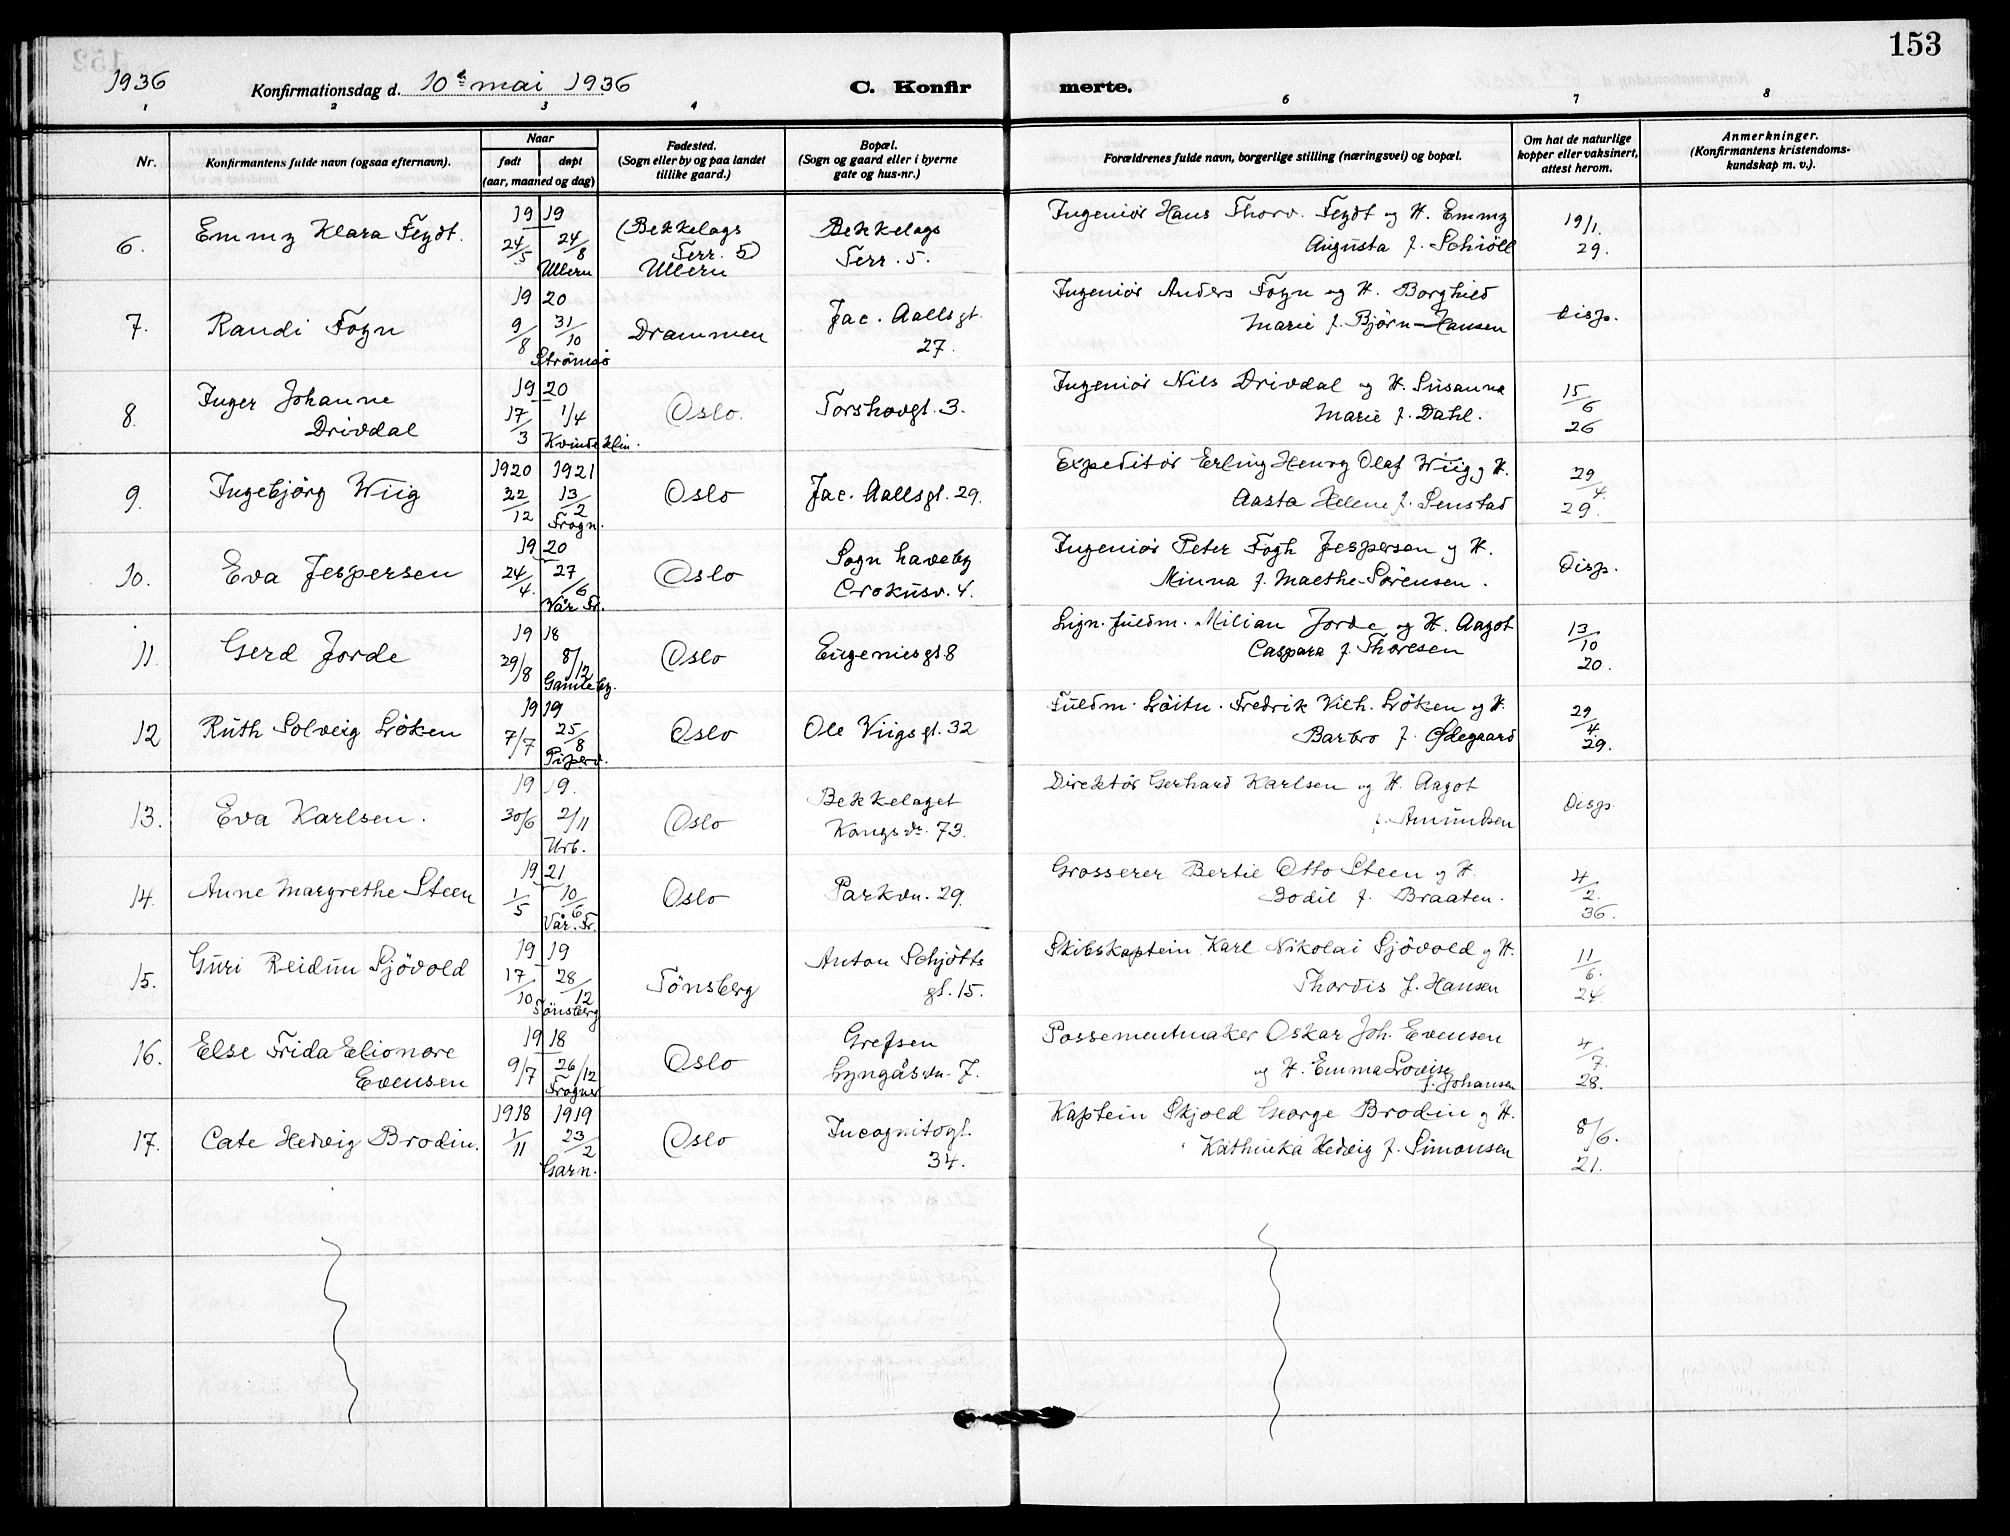 153
1936
Konfirmationsdag d. 10de mai 1936
C. Konfirmerte.
1 2 3 4 5 6 7 8
Nr.
Konfirmantens fulde navn (ogsaa efternavn).
Naar
født
døpt
(aar, maaned og dag)
Fødested.
(Sogn eller by og paa landet
tillike gaard.)
Bopæl.
(Sogn og gaard eller i byerne
gate og hus-nr.)
Forældrenes fulde navn, borgerlige stilling (næringsvei) og bopæl.
Om hat de naturlige
kopper eller vaksinert,
attest herom.
Anmerkninger.
(Konfirmantens kristendoms-
kundskap m. v.).
6. Emmy Klara Feydt.
19 19
24/5 24/8
Ullern
(Bekkelags
Terr. 5)
Ullern
Bekkelags
Terr. 5.
Ingeniör Hans Thorv. Feydt og H. Emmy
Augusta f. Schiöll
19/1.
29.
7. Randi Fogn
19 20
9/8 31/10
Strömsö
Drammen
Jac. Aallsgt.
27.
Ingeniör Anders Fogn og H. Borghild
Marie f. Björn-Hansen
Disp.
8. Inger Johanne
Drivdal
19 20
17/3 1/4
Kvindeklin.
Oslo.
Torshovgt. 3.
Ingeniör Nils Drivdal og H. Susanna
Marie f. Dahl.
15/6
26
9. Ingebjörg Wiig
1920 1921
22/12 13/2
Frogn.
Oslo
Jac. Aallsgt. 29.
Expeditör Erling Henry Olaf Wiig og H.
Aasta Helene f. Senstad
29/4.
29.
10. Eva Jespersen
19 20
24/4. 27/6
Vår Fr.
Oslo
Sogn haveby
Crokusv. 4.
Ingeniör Peter Fogh Jespersen og H.
Minna f. Maethe-Sörensen.
Disp.
11. Gerd Jorde
19 18
29/8 8/12
Gamleby.
Oslo
Eugeniesgt 8
Lign. fuldm. Milian Jorde og H. Aagot
Caspara f. Thoresen
13/10
20.
12 Ruth Solveig Löken
19 19
7/7 25/8
Piperv.
Oslo
Ole Viigsgt. 32
Fuldm. Löitn. Fredrik Vilh. Löken og H.
Barbro f. Ødegaard
29/4
29.
13. Eva Karlsen.
19 19.
30/6 2/11
Urb.
Oslo
Bekkelaget
Kongsvn. 73.
Direktör Gerhard Karlsen og H. Aagot
f. Amundsen
Disp.
14. Anne Margrethe Steen
19 21
1/5 10/6
Vår. Fr.
Oslo
Parkvn. 29.
Grosserer Bertil Otto Steen og H.
Bodil f. Braaten.
4/2.
36.
15. Guri Reidun Sjövold
19 19
17/10 28/12
Tönsberg
Tönsberg
Anton Schjötts
gt. 15.
Skibskaptein Karl Nikolai Sjövold og H.
Thordis f. Hansen
11/6.
24.
16. Else Frida Elionore
Evensen
19 18
9/7 26/12
Frogner
Oslo
Grefsen
Lyngåsvn. 7.
Possementmaker Oskar Joh. Evensen
og H. Emma Lovise
f. Johansen
4/7.
28.
17. Cate Hedvig Brodin.
1918 1919
1/11 23/2
Garn.
Oslo
Incognitogt.
34.
Kaptein Skjold George Brodin og H.
Kathinka Hedvig f. Simonsen
8/6.
21.